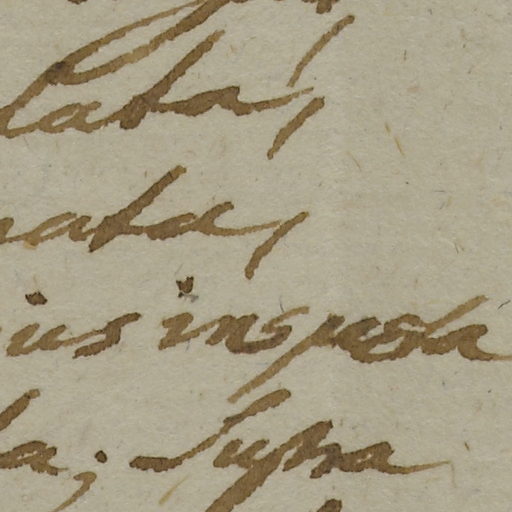 lata,
nata,
ius inspersa
la; supra